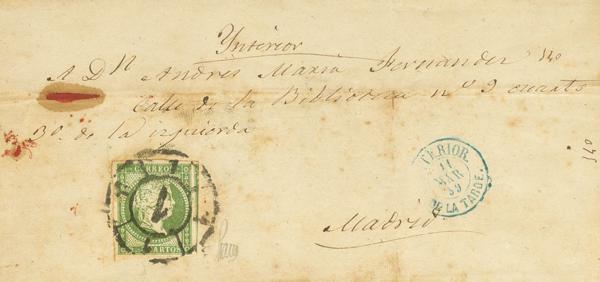 Ynterior
A Dn Andres Maria Fernandez
Calle de la Biblioteca nº 9 cuarto
3º de la izquierda
Madrid
CORREOS
CUARTOS
1
TERIOR.
11
MAR
59
DE LA TARDE.
340